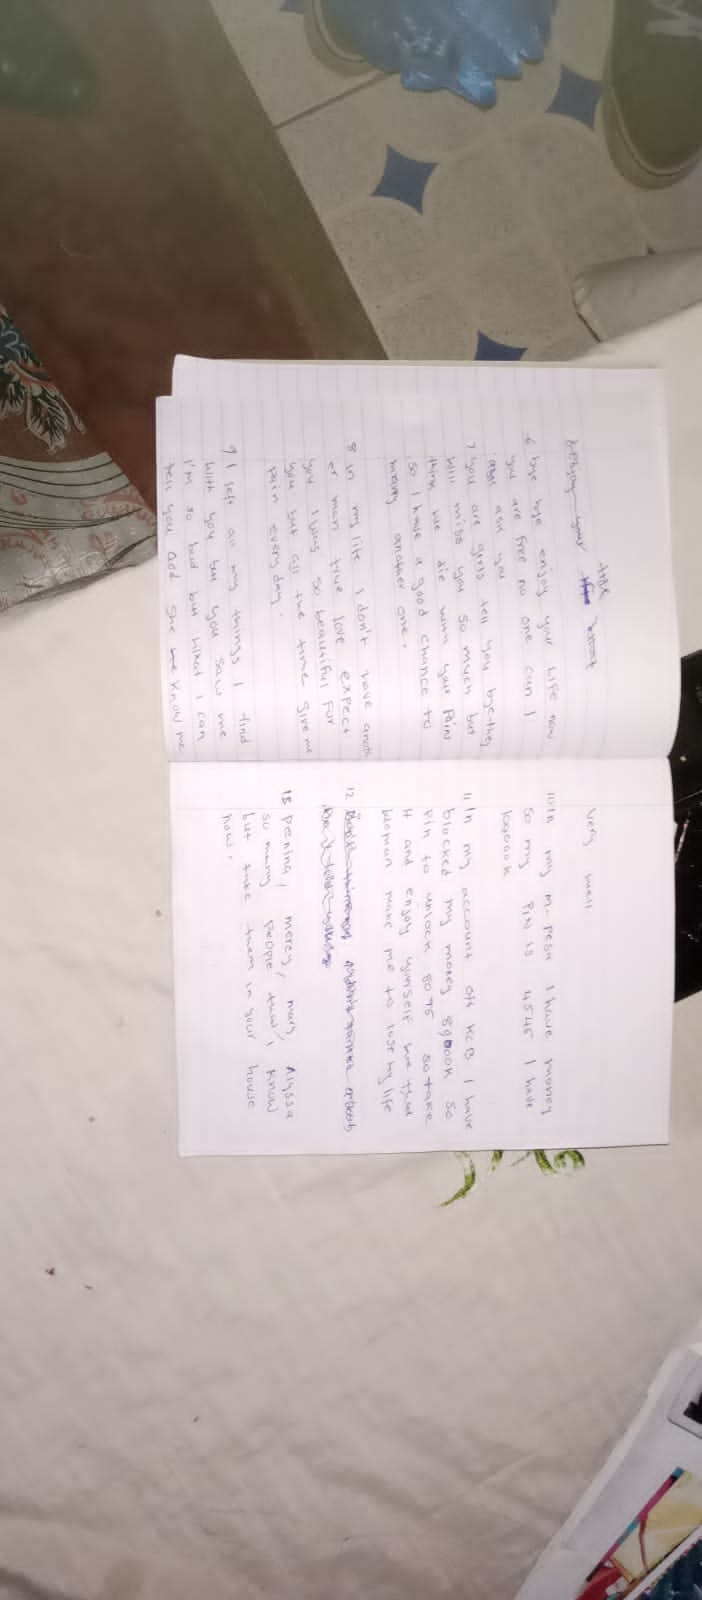 type
6 bye bye enjoy your life now
you are free no one can I
ask you
7 you are girls tell you bye they
will miss you so much but
me die with your pain
so I have a good chance to
marry another one.
8 In my life I don't have anoth
er man true love expect
you I was so beautiful for
you but all the time give me
pain every day.
9 I left all my things I find
with you but you saw me
I'm so bad but what I can
tell you God she know me
very well
10 In my m-pesa I have money
so my pin is 4545 I have
11 In my account of KCB I have
blocked my money so
pin to unlock 8075 so take
it and enjoy yourself but that
woman make me to lose my life
12
13 Penina/ mercy/ mary/ Alyssa
so many people that I know
but take them in your house
now.